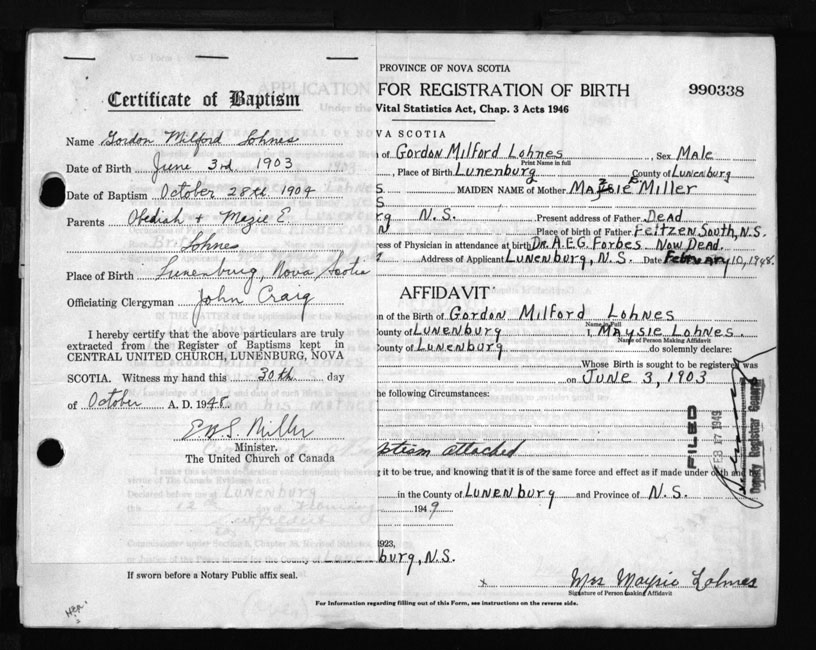 Certificate of Baptism
Name Gordon Milford Lohnes
Date of Birth June 3rd 1903
Date of Baptism October 28th 1904
Parents Obediah + Mazie E.
Lohnes
Place of Birth Lunenburg, Nova Scotia
Officiating Clergyman John Craig
I hereby certify that the above particulars are truly
extracted from the Register of Baptisms kept in
CENTRAL UNITED CHURCH, LUNENBURG, NOVA
SCOTIA. Witness my hand this 30th day
of October A. D. 1948.
Miller
Minister.
The United Church of Canada
If sworn before a Notary Public affix seal.
PROVINCE OF NOVA SCOTIA
FOR REGISTRATION OF BIRTH 990338
Vital Statistics Act, Chap. 3 Acts 1946
VA SCOTIA
of Gordon Milford Lohnes, Sex Male
Print Name in full
, Place of Birth Lunenburg County of Lunenburg
MAIDEN NAME of Mother Maysie Miller
N.S. Present address of Father Dead
Place of birth of Father Feitzen South, N.S.
ress of Physician in attendance at birth Dr. A.E.G. Forbes Now Dead.
Address of Applicant Lunenburg, N.S. Date February 10, 1948.
AFFIDAVIT
n of the Birth of Gordon Milford Lohnes
Name in Full
ounty of Lunenburg I, Maysie Lohnes.
Name of Person Making Affidavit
ounty of Lunenburg do solemnly declare:
Whose Birth is sought to be registered was
on June 3, 1903
he following Circumstances:
ptism attached
g it to be true, and knowing that it is of the same force and effect as if made under oath and by
in the County of Lunenburg and Province of N.S.
1949
1923,
burg, N.S.
x Mrs Maysie Lohnes
Signature of Person making Affidavit
For Information regarding filling out of this Form, see instructions on the reverse side.
FILED
FEB 17 1949
Deputy Registrar General